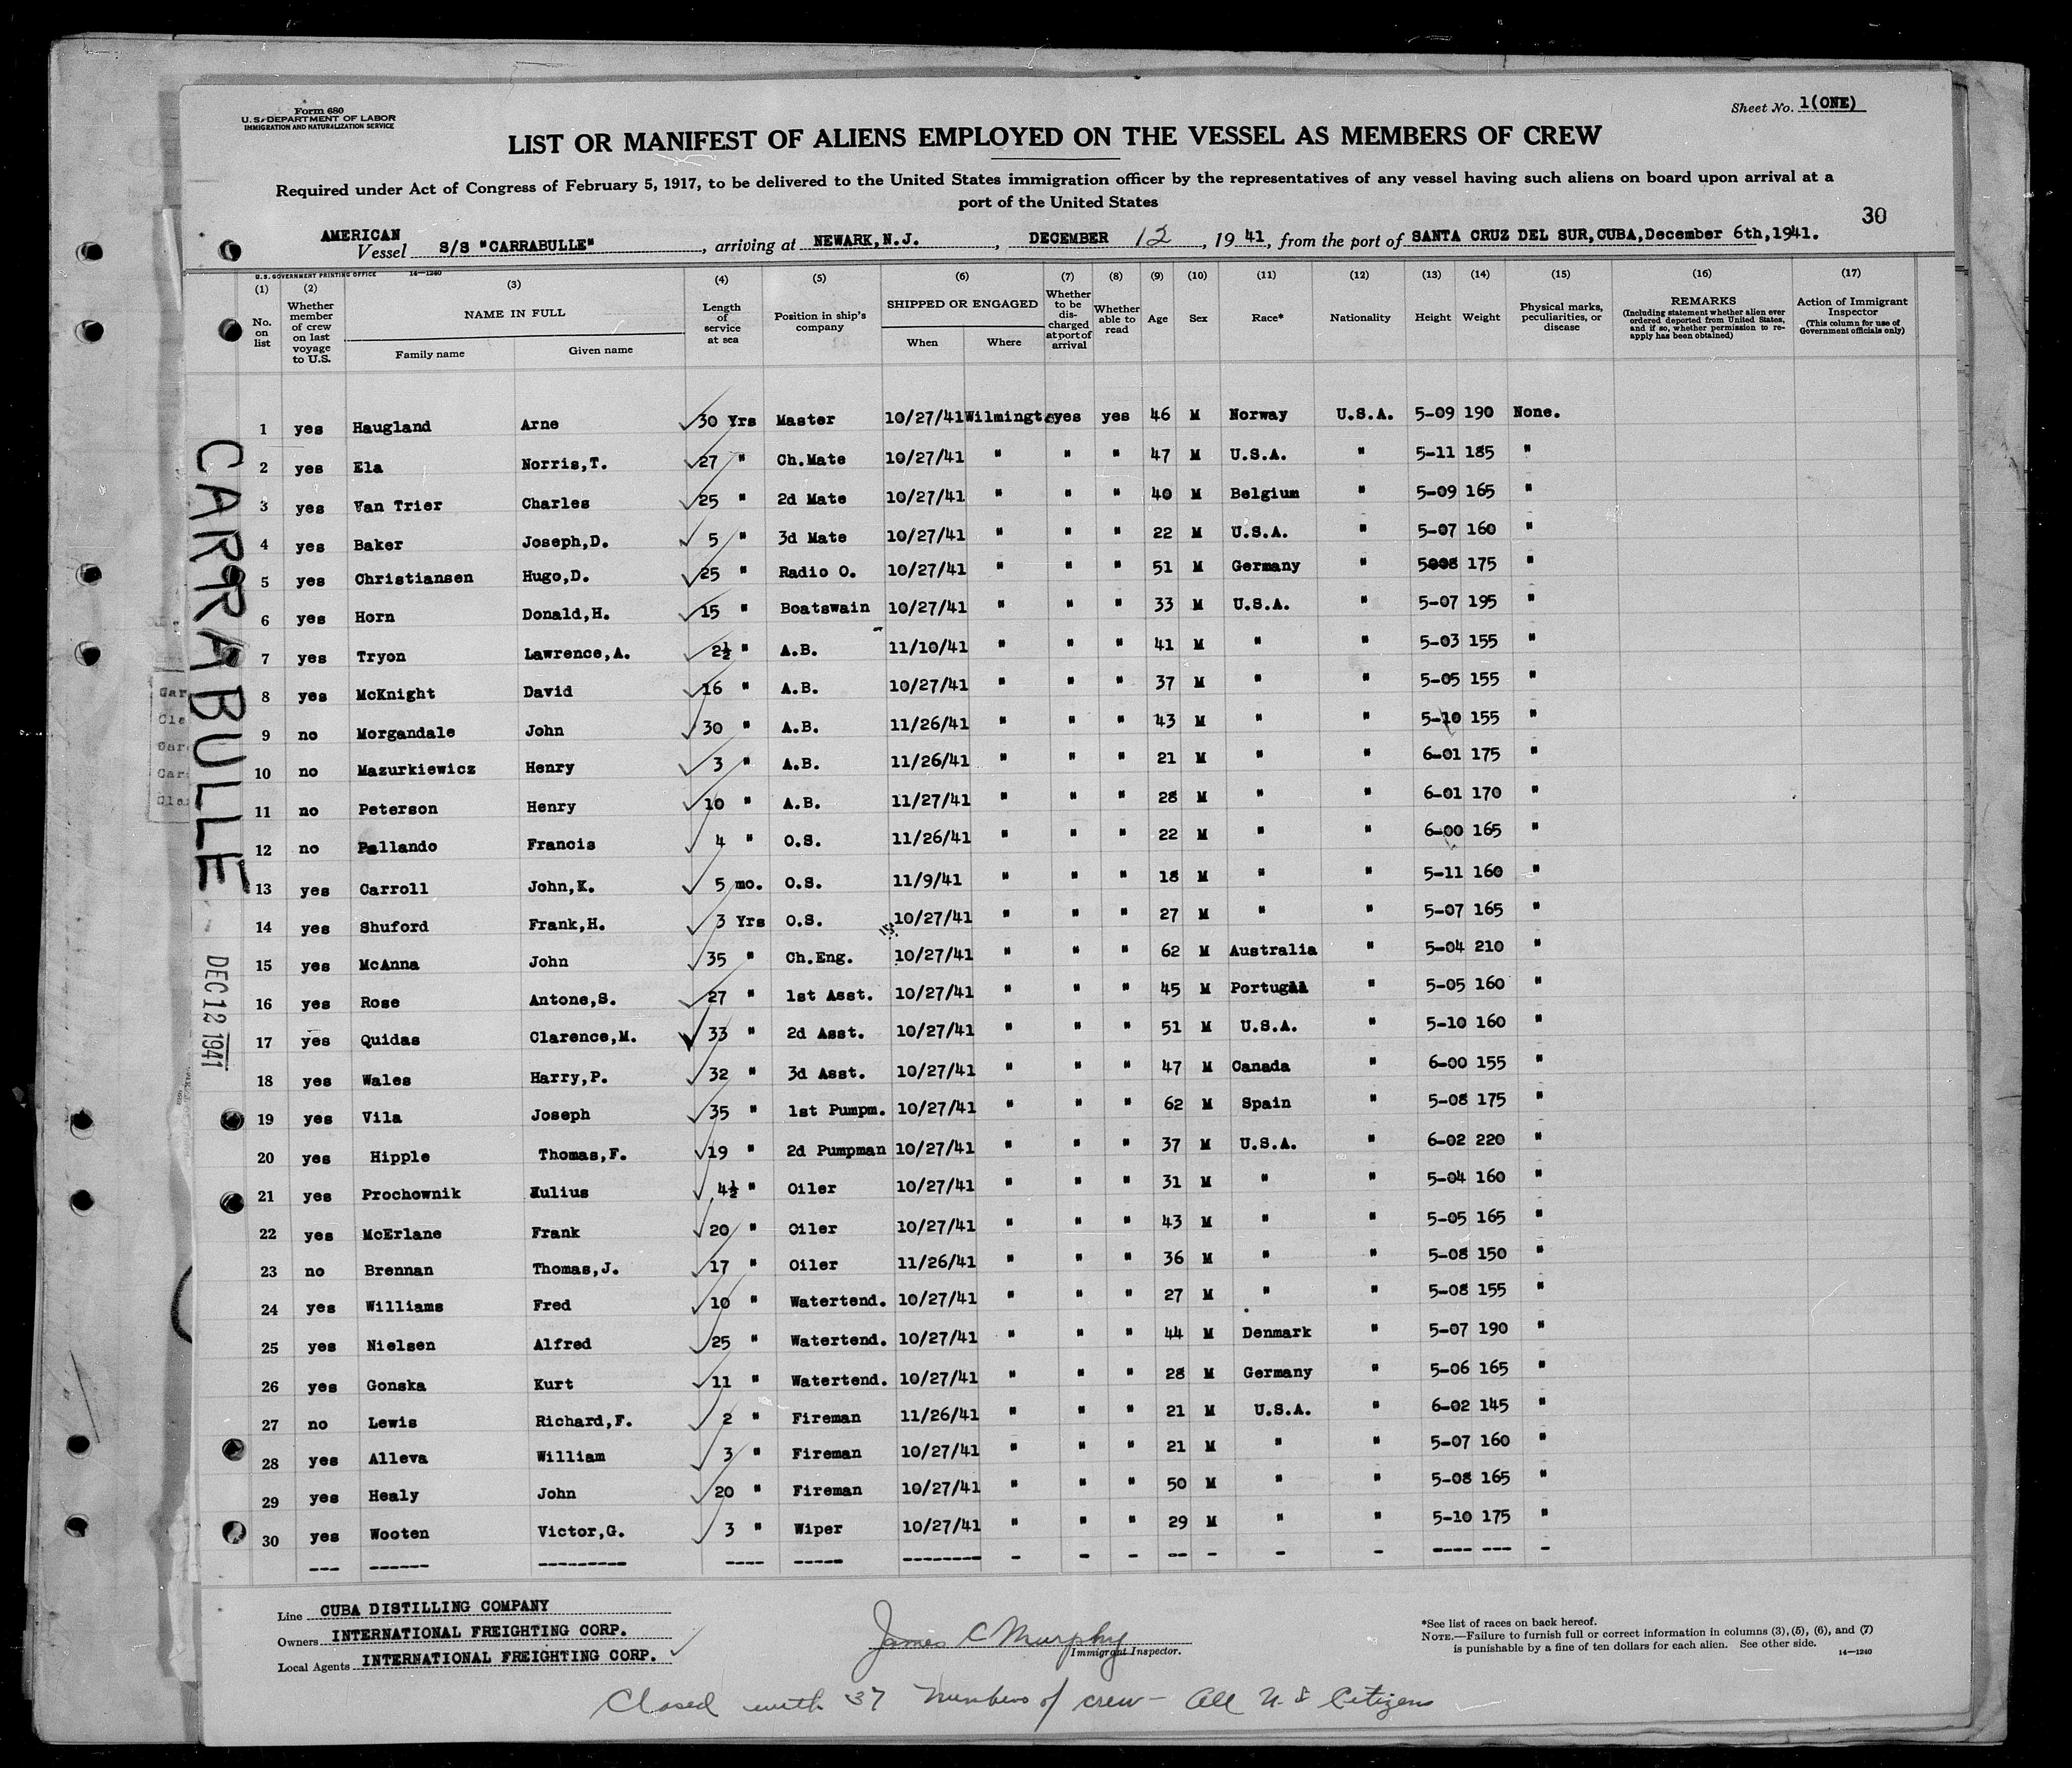 Form 680
U. S. DEPARTMENT OF LABOR
IMMIGRATION AND NATURALIZATION SERVICE
Sheet No. 1(ONE)
LIST OR MANIFEST OF ALIENS EMPLOYED ON THE VESSEL AS MEMBERS OF CREW
Required under Act of Congress of February 5, 1917, to be delivered to the United States immigration officer by the representatives of any vessel having such aliens on board upon arrival at a
port of the United States
30
AMERICAN
Vessel S/S "CARRABULLE", arriving at NEWARK,N.J., DECEMBER 12, 19 41, from the port of SANTA CRUZ DEL SUR,CUBA,December 6th,1941.
U. S. GOVERNMENT PRINTING OFFICE 14—1240
(1) (2) (3) (4) (5) (6) (7) (8) (9) (10) (11) (12) (13) (14) (15) (16) (17)
No. on list
Whether member of crew on last voyage to U.S.
NAME IN FULL
Family name Given name
Length of service at sea
Position in ship's company
SHIPPED OR ENGAGED
When Where
Whether to be discharged at port of arrival
Whether able to read
Age
Sex
Race*
Nationality
Height
Weight
Physical marks, peculiarities, or disease
REMARKS
(Including statement whether alien ever ordered deported from United States, and if so, whether permission to reapply has been obtained)
Action of Immigrant Inspector
(This column for use of Government officials only)
1 yes Haugland Arne 30 Yrs Master 10/27/41 Wilmingt yes yes 46 M Norway U.S.A. 5-09 190 None.
2 yes Ela Norris,T. 27 " Ch.Mate 10/27/41 " " " 47 M U.S.A. " 5-11 185 "
3 yes Van Trier Charles 25 " 2d Mate 10/27/41 " " " 40 M Belgium " 5-09 165 "
4 yes Baker Joseph,D. 5 " 3d Mate 10/27/41 " " " 22 M U.S.A. " 5-07 160 "
5 yes Christiansen Hugo,D. 25 " Radio O. 10/27/41 " " " 51 M Germany " 5008 175 "
6 yes Horn Donald,H. 15 " Boatswain 10/27/41 " " " 33 M U.S.A. " 5-07 195 "
7 yes Tryon Lawrence,A. 2½ " A.B. 11/10/41 " " " 41 M " " 5-03 155 "
8 yes McKnight David 16 " A.B. 10/27/41 " " " 37 M " " 5-05 155 "
9 no Morgandale John 30 " A.B. 11/26/41 " " " 43 M " " 5-10 155 "
10 no Mazurkiewicz Henry 3 " A.B. 11/26/41 " " " 21 M " " 6-01 175 "
11 no Peterson Henry 10 " A.B. 11/27/41 " " " 28 M " " 6-01 170 "
12 no Pallando Francis 4 " O.S. 11/26/41 " " " 22 M " " 6-00 165 "
13 yes Carroll John,K. 5 mo. O.S. 11/9/41 " " " 18 M " " 5-11 160 "
14 yes Shuford Frank,H. 3 Yrs O.S. 10/27/41 " " " 27 M " " 5-07 165 "
15 yes McAnna John 35 " Ch.Eng. 10/27/41 " " " 62 M Australia " 5-04 210 "
16 yes Rose Antone,S. 27 " 1st Asst. 10/27/41 " " " 45 M Portugal " 5-05 160 "
17 yes Quidas Clarence,M. 33 " 2d Asst. 10/27/41 " " " 51 M U.S.A. " 5-10 160 "
18 yes Wales Harry,P. 32 " 3d Asst. 10/27/41 " " " 47 M Canada " 6-00 155 "
19 yes Vila Joseph 35 " 1st Pumpm. 10/27/41 " " " 62 M Spain " 5-08 175 "
20 yes Hipple Thomas,F. 19 " 2d Pumpman 10/27/41 " " " 37 M U.S.A. " 6-02 220 "
21 yes Prochownik Julius 4½ " Oiler 10/27/41 " " " 31 M " " 5-04 160 "
22 yes McErlane Frank 20 " Oiler 10/27/41 " " " 43 M " " 5-05 165 "
23 no Brennan Thomas,J. 17 " Oiler 11/26/41 " " " 36 M " " 5-08 150 "
24 yes Williams Fred 10 " Watertend. 10/27/41 " " " 27 M " " 5-08 155 "
25 yes Nielsen Alfred 25 " Watertend. 10/27/41 " " " 44 M Denmark " 5-07 190 "
26 yes Gonska Kurt 11 " Watertend. 10/27/41 " " " 28 M Germany " 5-06 165 "
27 no Lewis Richard,F. 2 " Fireman 11/26/41 " " " 21 M U.S.A. " 6-02 145 "
28 yes Alleva William 3 " Fireman 10/27/41 " " " 21 M " " 5-07 160 "
29 yes Healy John 20 " Fireman 10/27/41 " " " 50 M " " 5-08 165 "
30 yes Wooten Victor,G. 3 " Wiper 10/27/41 " " " 29 M " " 5-10 175 "
CARRABULLE
DEC 12 1941
Line CUBA DISTILLING COMPANY
Owners INTERNATIONAL FREIGHTING CORP.
Local Agents INTERNATIONAL FREIGHTING CORP.
James C Murphy
Immigrant Inspector.
*See list of races on back hereof.
NOTE.—Failure to furnish full or correct information in columns (3), (5), (6), and (7)
is punishable by a fine of ten dollars for each alien. See other side.
14—1240
Closed with 37 members of crew - All U.S Citizens